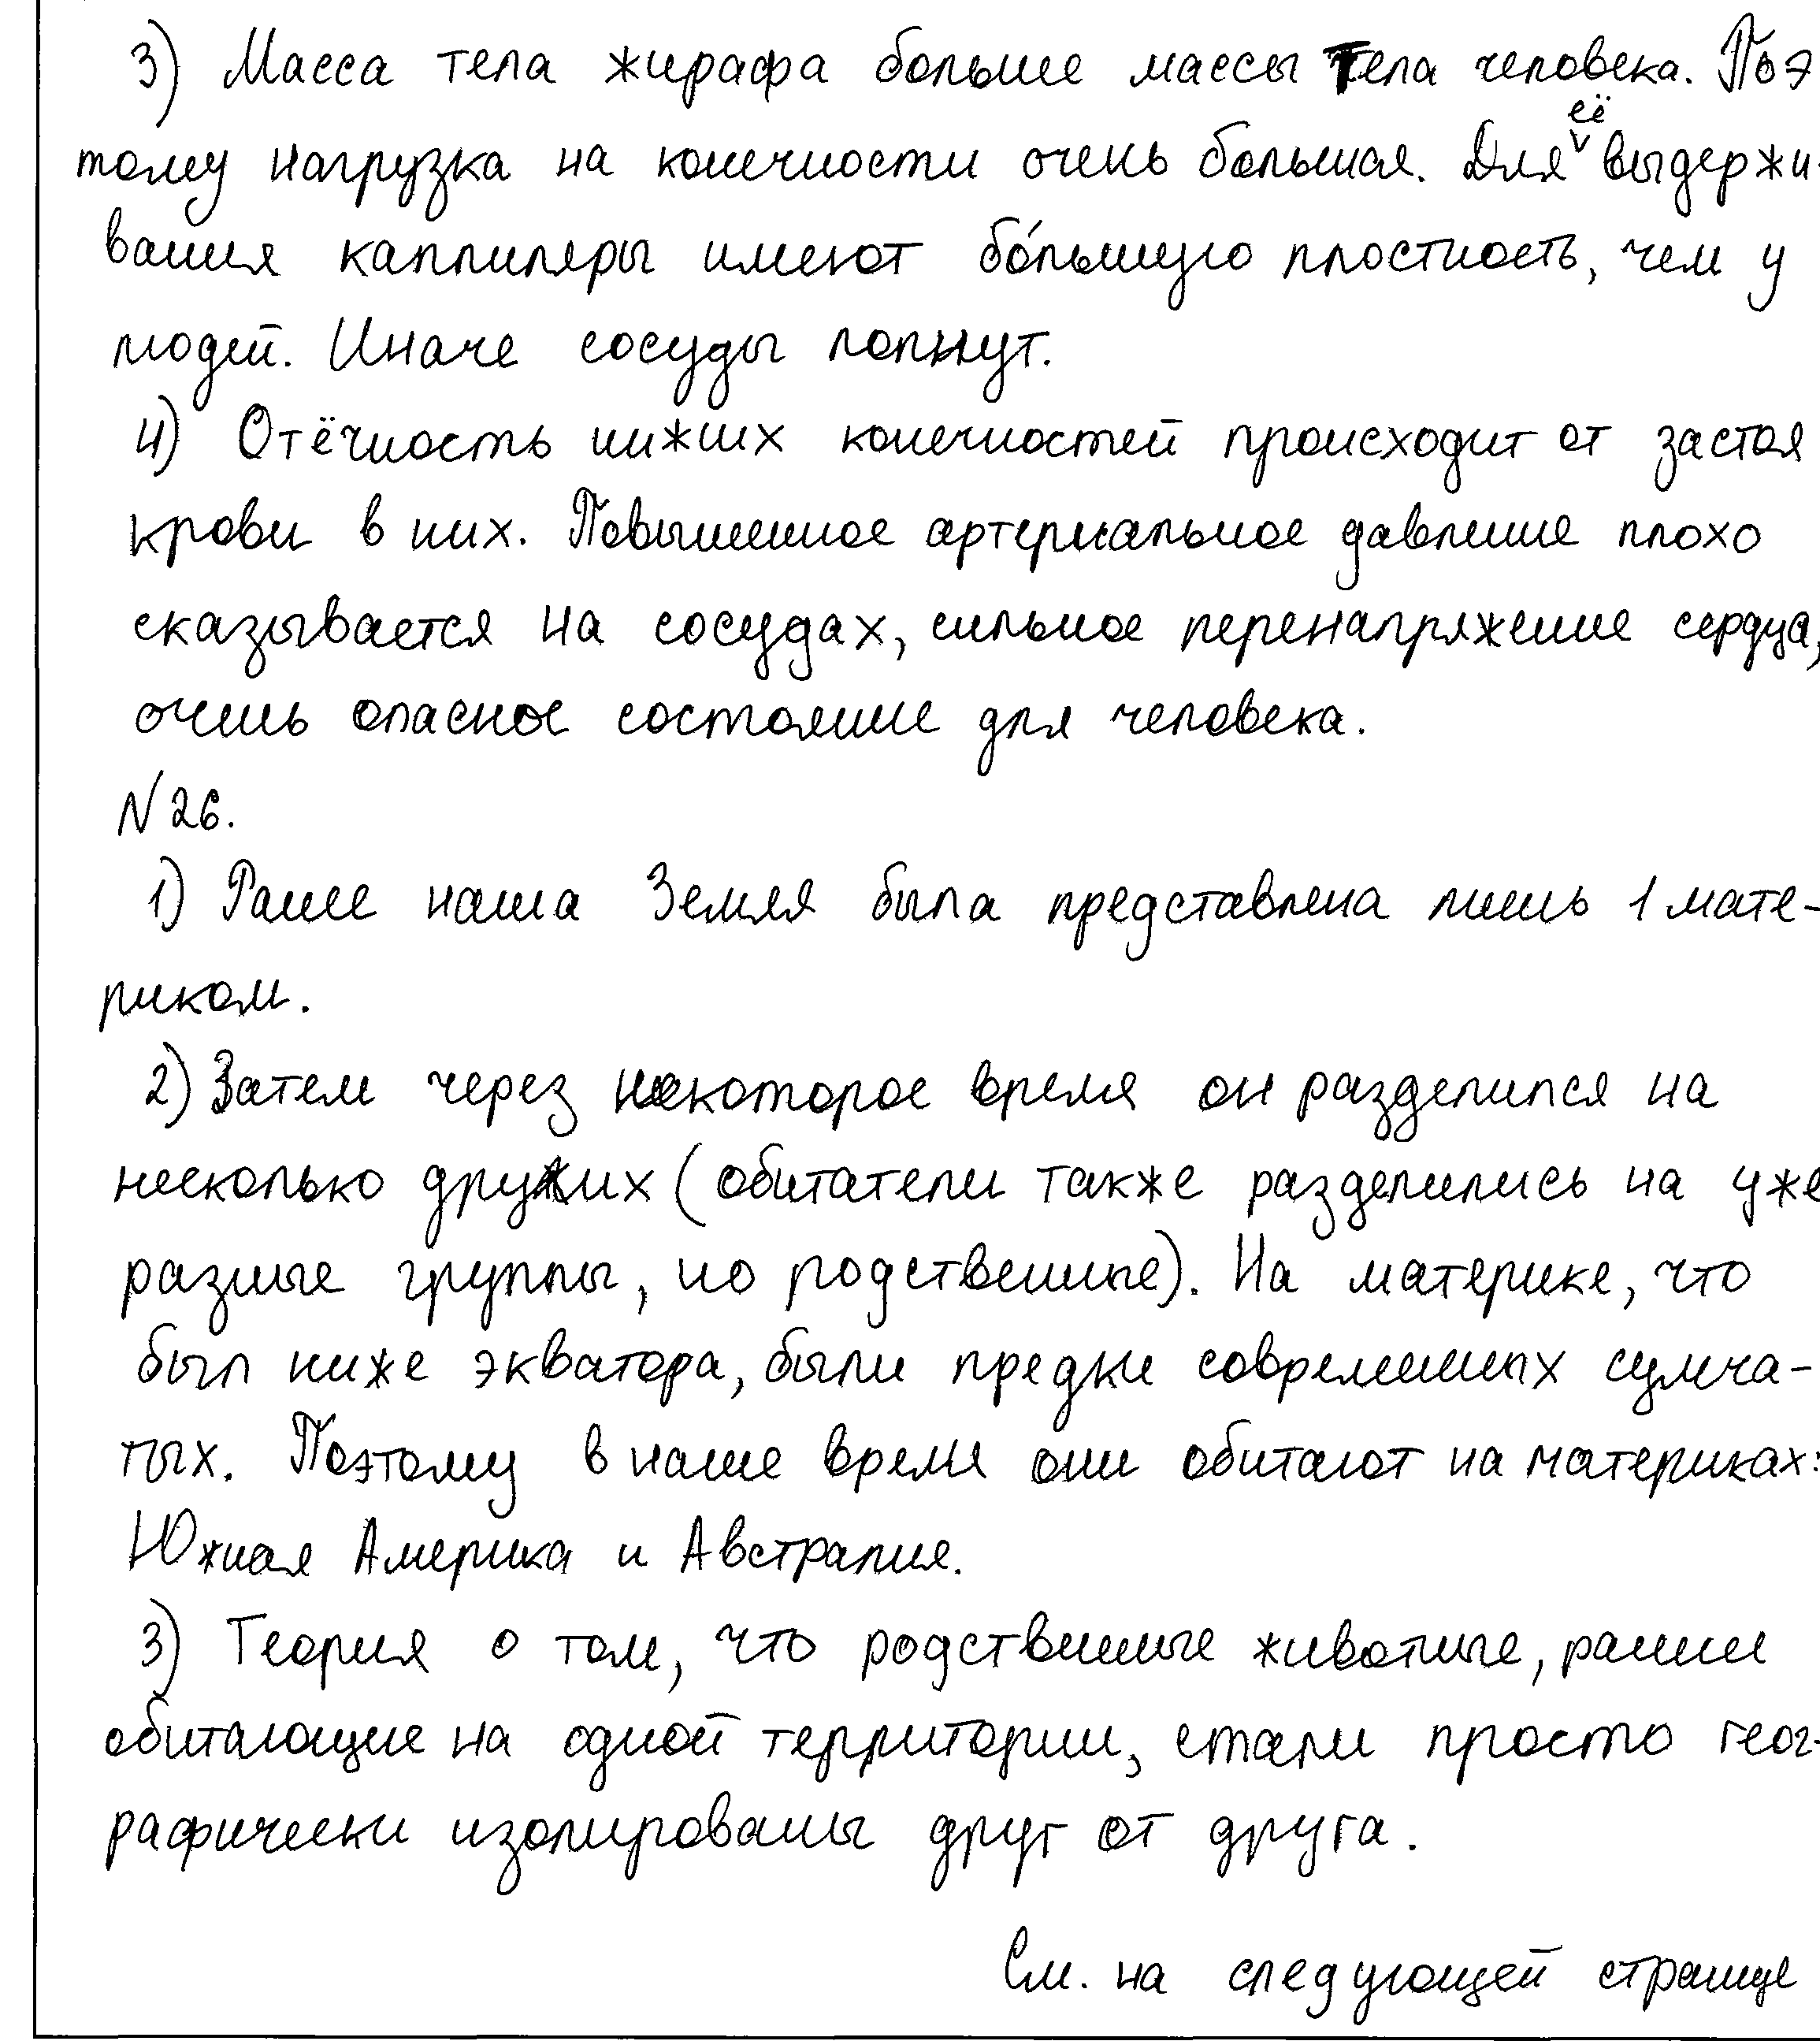 3) Масса тела жирафа больше массы тела человека. Поэ
тому нагрузка на конечности очень большая. Для её выдержи-
вания каппиляры имеют бо́льшую плостность, чем у
людей. Иначе сосуды лопнут.
4) Отёчность нижних конечностей происходит от застоя
крови в них. Повышенное артериальное давление плохо
сказывается на сосудах, сильное перенапряжение сердца,
очень опасное состояние для человека.
N26.
1) Ранее наша Земля была представлена лишь 1 мате-
риком.
2) Затем через некоторое время он разделился на
несколько других (обитатели также разделились на уже
разные группы, но родственные). На материке, что
был ниже экватора, были предки современных сумча-
тых. Поэтому в наше время они обитают на материках:
Южная Америка и Австралия.
3) Теория о том, что родственные животные, ранее
обитающие на одной территории, стали просто геог-
рафически изолированы друг от друга.
См. на следующей странице